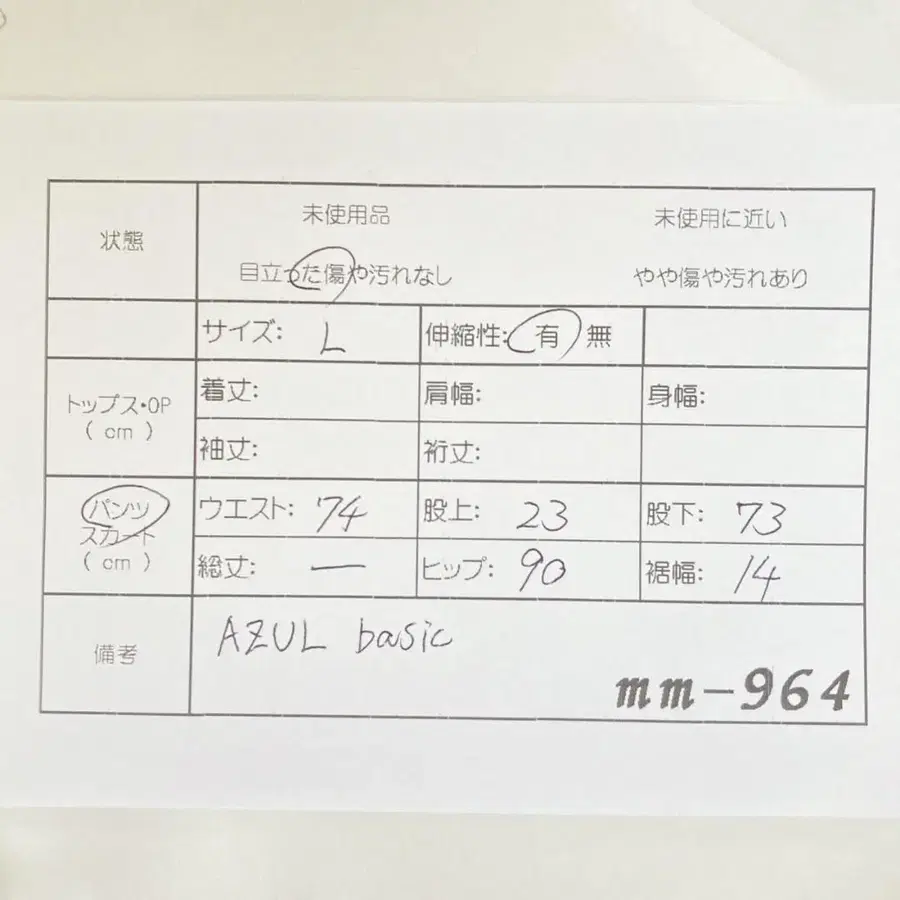 状態
未使用品 未使用に近い
目立った傷や汚れなし やや傷や汚れあり
サイズ: L 伸縮性: 有 無
トップス・OP
( cm )
着丈: 肩幅: 身幅:
袖丈: 裄丈:
パンツ
スカート
( cm )
ウエスト: 74 股上: 23 股下: 73
総丈: ー ヒップ: 90 裾幅: 14
備考
AZUL basic
mm-964